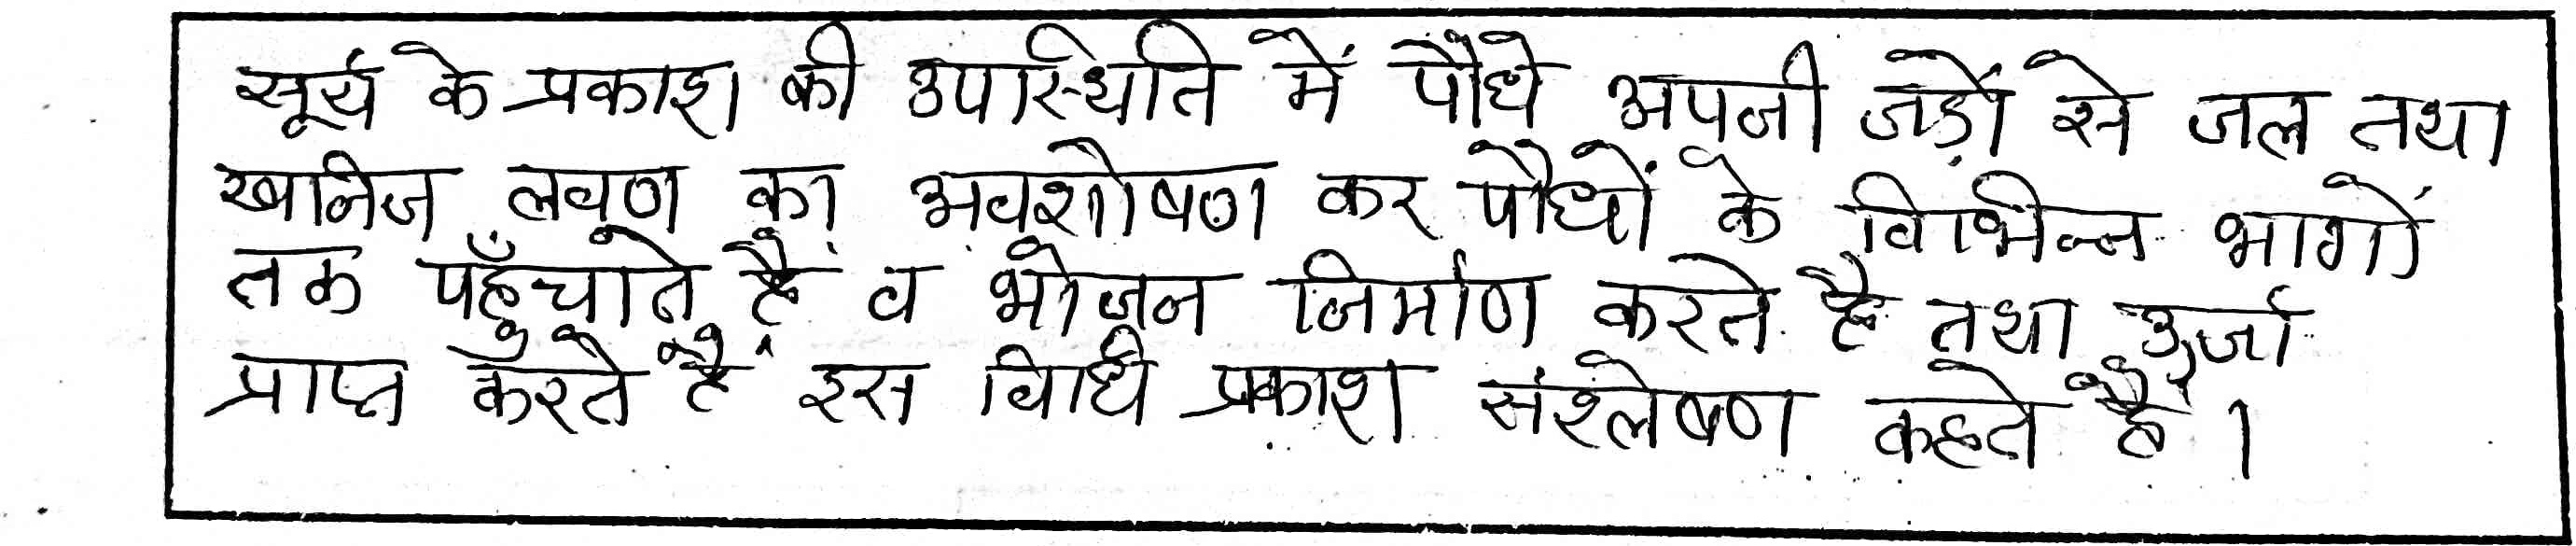 सूर्य के प्रकाश की उपस्थिति में पौधे अपनी जड़ों से जल तथा
खनिज लवण का अवशोषण कर पौधों के विभिन्न भागों
तक पहुँचाते है व भोजन निर्माण करते है तथा ऊर्जा
प्राप्त करते है इस विधि प्रकाश संश्लेषण कहते है।